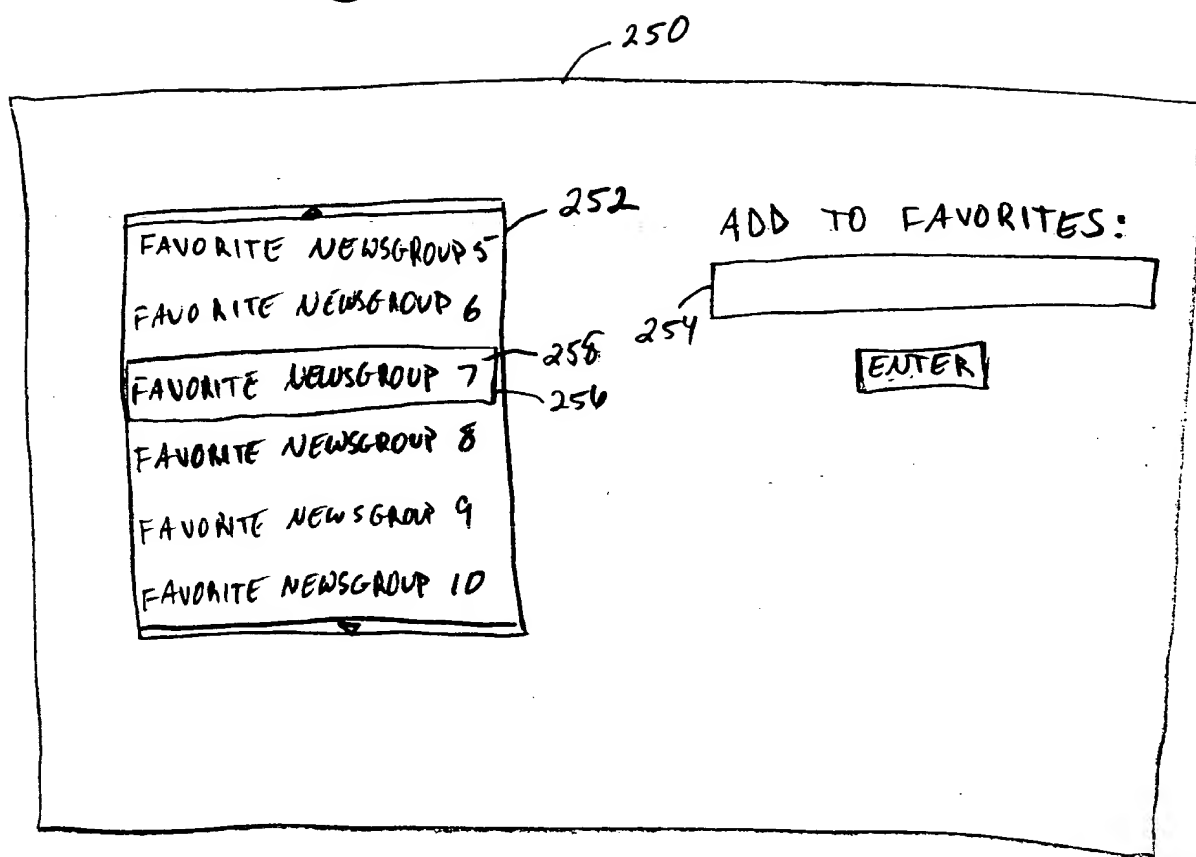 250
252
FAVORITE NEWSGROUP 5
FAVORITE NEWSGROUP 6
FAVORITE NEWSGROUP 7
258
256
FAVORITE NEWSGROUP 8
FAVORITE NEWSGROUP 9
FAVORITE NEWSGROUP 10
ADD TO FAVORITES:
254
ENTER